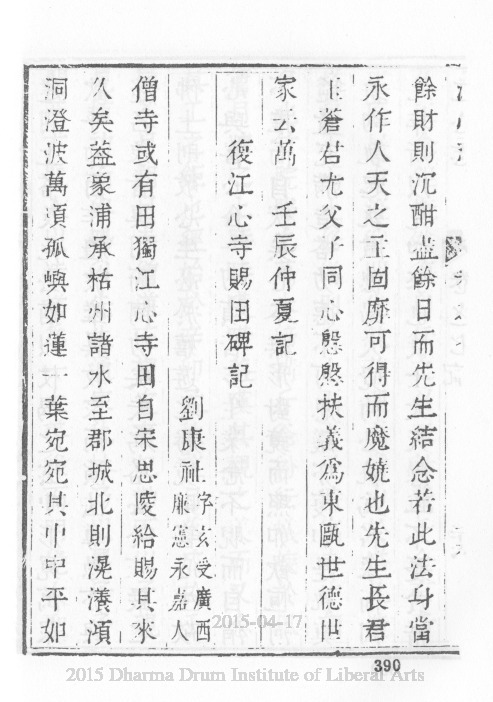 餘財則沉酣盡餘日而先生結念若此法身當
永作人天之主固靡可得而魔嬈也先生長君
主蒼君尤父子同心慇慇扶義為東甌世德世
家云萬壬辰仲夏記
復江心寺賜田碑記
劉康祉字玄受廣西廉憲永嘉人
僧寺或有田獨江心寺田自宋思陵給賜其來
久矣葢象浦承栝州諸水至郡城北則滉瀁澒
洞澄波萬頃孤嶼如蓮一葉宛宛其中中平如
2015-04-17
390
2015 Dharma Drum Institute of Liberal Arts